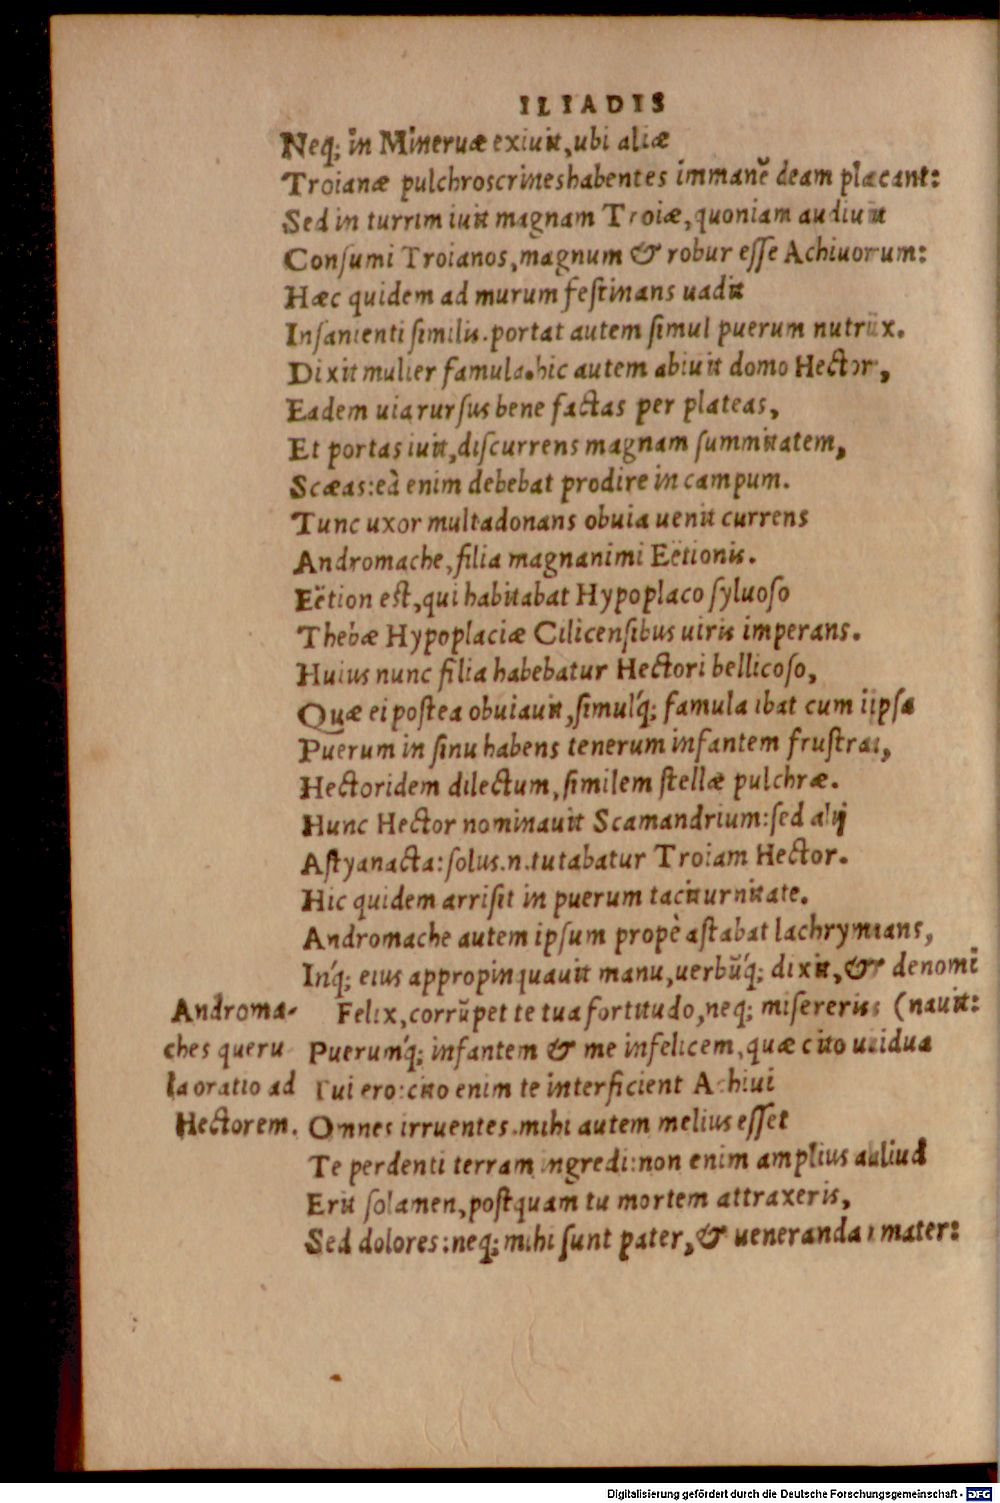 ILIADIS
Neq; in Mineruæ exiuit, ubi aliæ
Troianæ pulchroscrineshabentes immanē deam placant:
Sed in turrim iuit magnam Troiæ, quoniam audiuit
Consumi Troianos, magnum & robur esse Achiuorum:
Hæc quidem ad murum festinans uadit
Insanienti similis. portat autem simul puerum nutrix.
Dixit mulier famula. hic autem abiuit domo Hector,
Eadem uia rursus bene factas per plateas,
Et portas iuit, discurrens magnam summitatem,
Scæas: eà enim debebat prodire in campum.
Tunc uxor multadonans obuia uenit currens
Andromache, filia magnanimi Eëtionis.
Eëtion est, qui habitabat Hypoplaco syluoso
Thebæ Hypoplaciæ Cilicensibus uiris imperans.
Huius nunc filia habebatur Hectori bellicoso,
Quæ ei postea obuiauit, simulq́; famula ibat cum iipsa
Puerum in sinu habens tenerum infantem frustra,
Hectoridem dilectum, similem stellæ pulchræ.
Hunc Hector nominauit Scamandrium: sed alij
Astyanacta: solus .n. tutabatur Troiam Hector.
Hic quidem arrisit in puerum taciturnitate.
Andromache autem ipsum propè astabat lachrymans,
Inq́; eius appropinquauit manu, uerbūq́; dixit, & denomi
Androma- Felix, corrūpet te tua fortitudo, neq; misereris (nauit:
ches queru Puerumq́; infantem & me infelicem, quæ cito uidua
la oratio ad Tui ero: cito enim te interficient Achiui
Hectorem. Omnes irruentes. mihi autem melius esset
Te perdenti terram ingredi: non enim amplius aliud
Erit solamen, postquam tu mortem attraxeris,
Sed dolores: neq; mihi sunt pater, & ueneranda mater:
Digitalisierung gefördert durch die Deutsche Forschungsgemeinschaft - DFG